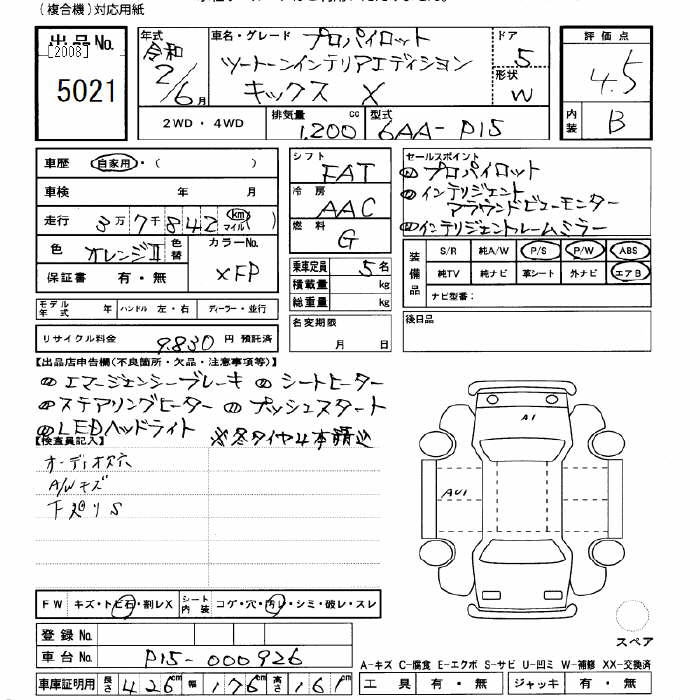 (複合機)対応用紙
出品No.
[2008]
5021
年式
令和
2/6月
車名・グレード プロパイロット
ツートーンインテリアエディション
キックス X
ドア
5
形状
W
評価点
4.5
内装
B
2WD・4WD
排気量
1,200 cc
型式
6AA-P15
車歴 自家用・( )
車検 年 月
走行 3万7千842 km マイル( )
色 オレンジII 色替
カラーNo.
XFP
保証書 有・無
シフト
FAT
冷房
AAC
燃料
G
乗車定員 5名
積載量 kg
総重量 kg
セールスポイント
プロパイロット
インテリジェント
アラウンドビューモニター
インテリジェントルームミラー
装備品
S/R 純A/W P/S P/W ABS
純TV 純ナビ 革シート 外ナビ エアB
ナビ型番:
モデル年式 年 ハンドル 左・右 ディーラー・並行
名変期限
月 日
後日品
リサイクル料金 9,830 円 預託済
【出品店申告欄(不良箇所・欠品・注意事項等)】
エマージェンシーブレーキ シートヒーター
ステアリングヒーター プッシュスタート
LEDヘッドライト ※冬タイヤ4本積込
【検査員記入】
オーディオス穴
A/Wキズ
下廻りS
A1
AU1
FW キズ・トビ石・割レX
シート内装 コゲ・穴・汚レ・シミ・破レ・スレ
登録No.
車台No. P15-000926
スペア
A-キズ C-腐食 E-エクボ S-サビ U-凹ミ W-補修 XX-交換済
車庫証明用 長さ 426cm 幅 176cm 高さ 161cm
工具 有・無 ジャッキ 有・無